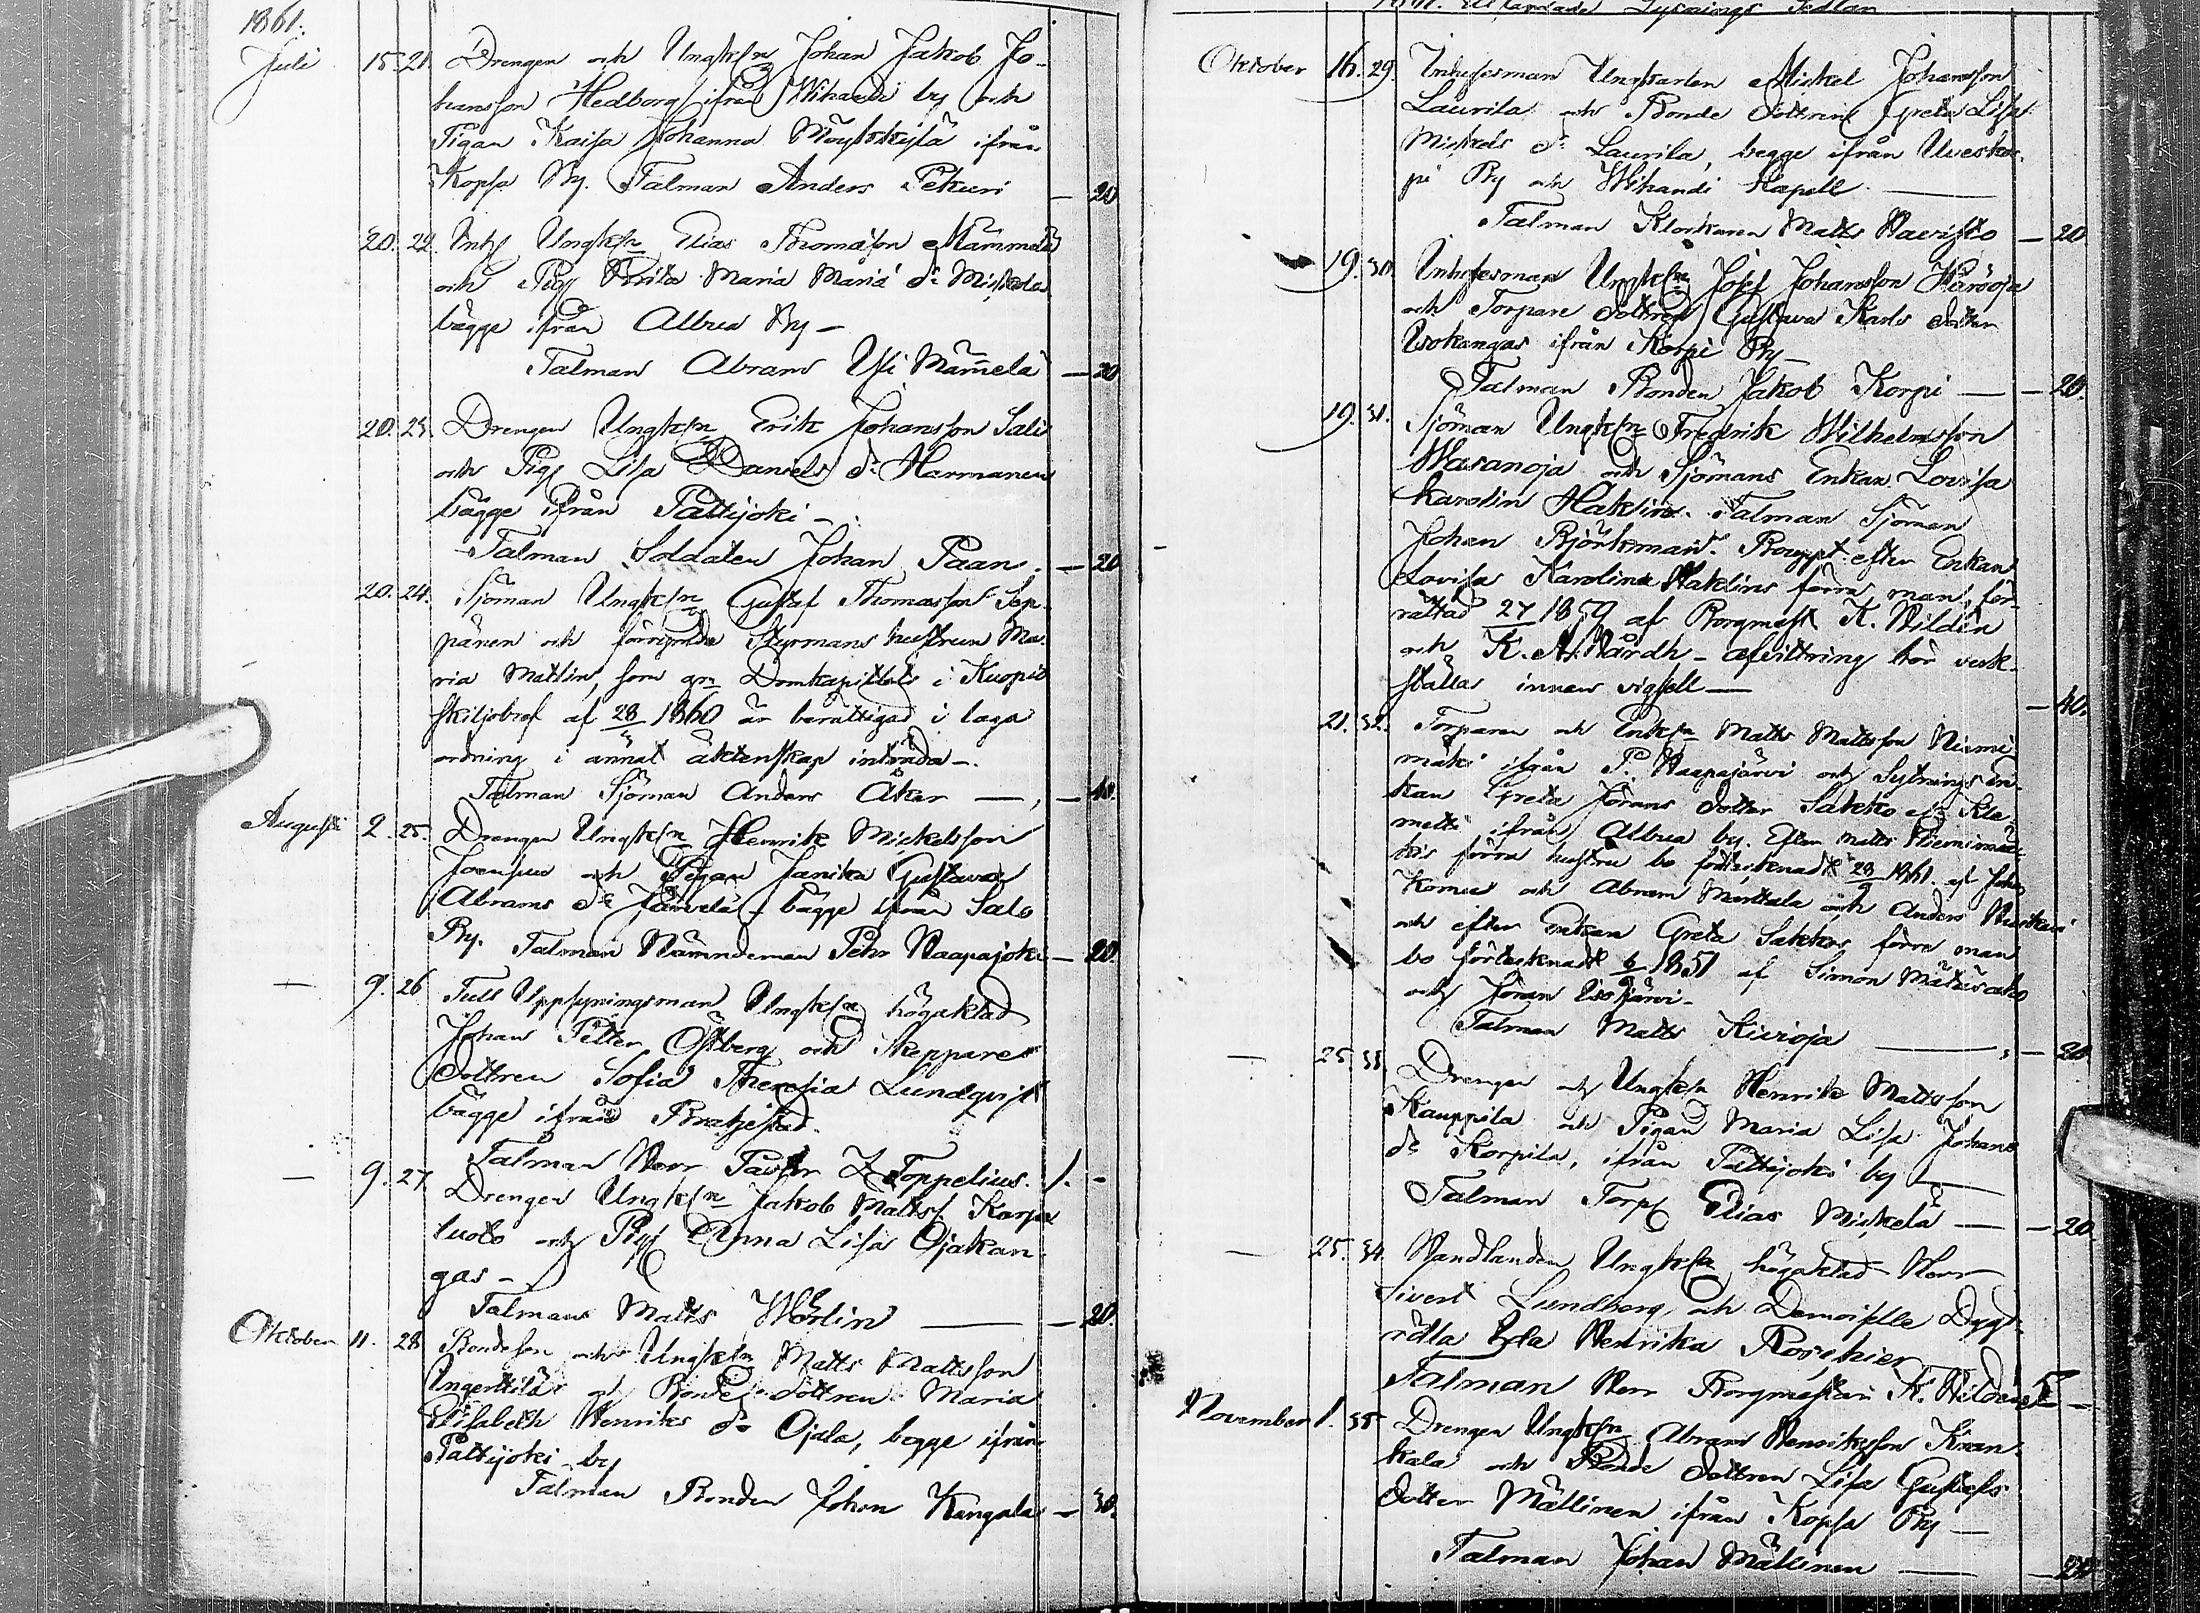 1861.
Juli 15. 21. Drengen och Ungk:n Johan Jakob Jo-
hansson Hedborg ifrån Wihandi by och
Pigan Kaisa Johanna ifrån
Kopsa By. Talman Anders Pekuri — 20
20. 22. Inh: Ungk:n Elias Thomasson Mämmelä
och Pig: Brita Maria Maria d:r Mickola
bägge ifrån Albrea By —
Talman Abram Yli Mam̄elä — 20
20. 23. Drengen Ungk:n Erik Johansson Sali
och Pig: Lisa Daniels d:r Harmanen
bägge ifrån Pattijoki —
Talman Soldaten Johan Paan. — 20
20. 24. Sjöman Ungk:n Gustaf Thomasson Sep-
pänen och Styrmans hustrun Ma-
ria Matlin, som gm Domkapitlets i Kuopio
skiljobref af 28 1860 är berättigad i laga
ordning i annat äktenskap inträda —.
Talman Sjöman Anders Åker —, — 40.
Augusti 2. 25. Drengen Ungk:n Henrik Mickelsson
Joensuu och Pigan Janika Gustava
Abrams d:r Järvelä — bägge ifrån Salo
By. Talman Nämndeman Pehr Haapajoki — 20
— 9. 26 Tull Uppsyningsman Ungk:n högaktad
Johan Petter Östberg och Skeppare
dottren Sofia Theresia Lundqvist
bägge ifrån Brahestad.
Talman Herr Pastor Z. Toppelius. 1. -
— 9. 27. Drengen Ungk:n Jakob Matts: Karja
luoto och Pig: Anna Lisa Ojakan-
gas —
Talman Matts Wörlin — — 20.
Oktober 11. 28 Bondeson och Ungk:n Matts Mattsson
Ungerttilä och Bonde dottren Maria
Elisabeth Henriks d:r Ojala, begge ifrån
Pattijoki by
Talman Bonden Johan Kangala — 30.
1861. Utfärdade Lysnings Sedlar
Oktober 16. 29. Inhysesman Ungkarlen Mickel Johansson
Laurila och Bonde dottren Greta Lisa
Mickels d:r Laurila, begge ifrån Uveskor-
pi By och Wihandi Kapell. —
Talman Klockaren Matts Navisto — 20
19. 30. Inhysesman Ungk:n Josef Johansson Häröoja
och Torpare dottren Gustava Karls dotter
Isokangas ifrån Korpi By —
Talman Bonden Jakob Korpi — — 20.
19. 31. Sjöman Ungk:n Fredrik Wilhelmsson
Wasanoja och Sjömans Enkan Lovisa
Karolin Haklin. Talman Sjöman
Johan Björkman. Bouppt. efter Enkan
Lovisa Karolina Haklins förra man, för-
rättad 27 1859 af Borgmäst K. Wildén
och K. A. Wårdh — afvittring bör verk-
ställas innan vigsell — — 40.
21. 32. Torparen och Enk:n Matts Mattsson Niemi-
mäki ifrån P. Haapajärvi och Sytnings en-
kan Greta Jörans dotter Sakko Kle-
metti ifrån Albrea by. Efter Matts Niemimä-
kis förra hustru bo förtecknadt 28 1861 af Joh.
Komu och Abram Mattala och Anders
och efter Enkan Greta Sakkos förre man
bo förtecknadt 6 1851 af Simon
och Jöran Isojärvi —
Talman Matts Kivioja — — 20
— 25. 33. Drengen och Ungk:n Henrik Mattsson
Kauppila och Pigan Maria Lisa Johans
d:r Korpila, ifrån Pattijoki by —
Talman Torp: Elias Mickelä — — 20
— 25. 34. Handlanden Ungk:n högaktad Herr
Sivert Lundberg, och Demoiselle Dygd-
rätta Eda Henrika Rovehier
Talman Herr Borgmästari K. Wildén 5 —
November 1. 35. Drengen Ungk:n Abram Henriksson Kran-
kala och Bonde dottren Lisa Gustafs
dotter Mällinen ifrån Kopsa By —
Talman Johan Mällinen — — 20